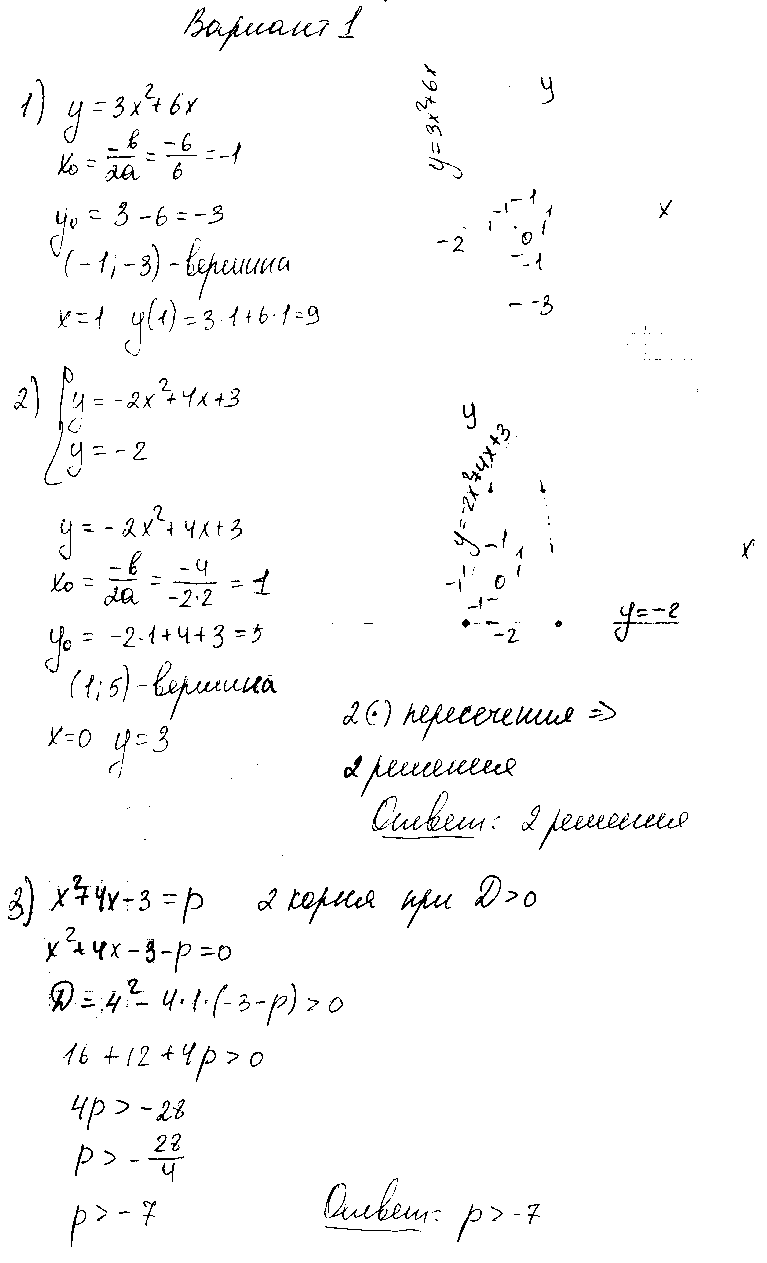 Вариант 1
1) y = 3x²+6x
x₀ = -b/2a = -6/6 = -1
y₀ = 3 - 6 = -3
(-1; -3) - вершина
x=1 y(1) = 3·1+6·1=9
y=3x²+6x
y
x
-1 1
-1 1
-2 0
-1
-3
2) { y = -2x²+4x+3
y = -2
y = -2x²+4x+3
x₀ = -b/2a = -4/-2·2 = 1
y₀ = -2·1+4+3=5
(1; 5) - вершина
x=0 y=3
y
y=-2x²+4x+3
x
-1 1
-1 0
-1
-2
y=-2
2(·) пересечения ⇒
2 решения
Ответ: 2 решения
3) x²+4x-3=p 2 корня при D>0
x²+4x-3-p=0
D=4²-4·1·(-3-p)>0
16+12+4p>0
4p>-28
p>-28/4
p>-7 Ответ: p>-7